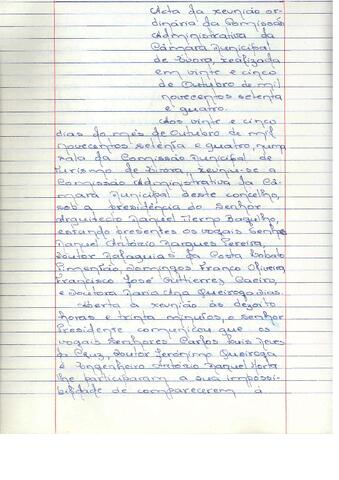 Acta da reunião or-
dinária da Comissão
Administrativa da
Câmara Municipal
de Évora, realizada
em vinte e cinco
de Outubro de mil
novecentos setenta
e quatro.
Aos vinte e cinco
dias do mês de Outubro de mil
novecentos setenta e quatro, numa
sala da Comissão Municipal de
Turismo de Évora, reuniu-se a
Comissão Administrativa da Câ-
mara Municipal deste concelho,
sob a presidência do Senhor
Arquitecto Manuel Bagulho,
estando presentes os vogais Senhores
Manuel António Marques Pereira,
Doutor da Costa Lobato
Pimentão, Domingos Franco Oliveira
Francisco José Guttierrez Caeiro,
e Doutora Maria Ana Queiroga Dias.
Aberta a reunião às dezoito
horas e trinta minutos, o Senhor
Presidente comunicou que os
vogais Senhores Carlos Luis Neves
da Cruz, Doutor Jerónimo Queiroga
e Engenheiro António Manuel Horta
lhe participaram a sua impossi-
bilidade de comparecerem à